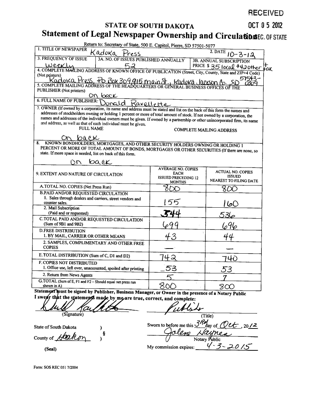 RECEIVED
OCT 05 2012
SEC. OF STATE
STATE OF SOUTH DAKOTA
Statement of Legal Newspaper Ownership and Circulation
Return to: Secretary of State, 500 E. Capitol, Pierre, SD 57501-5077
1. TITLE OF NEWSPAPER Kadoka Press
2. DATE 10-3-12
3. FREQUENCY OF ISSUE Weekly
3A. NO. OF ISSUES PUBLISHED ANNUALLY 52
3B. ANNUAL SUBSCRIPTION PRICE $ 35 local $42 other + tax
4. COMPLETE MAILING ADDRESS OF KNOWN OFFICE OF PUBLICATION (Street, City, County, State and ZIP+4 Code)
(Not printers) Kadoka Press, PO Box 309, 915 main St., Kadoka
5. COMPLETE MAILING ADDRESS OF THE HEADQUARTERS OR GENERAL BUSINESS OFFICES OF THE
PUBLISHER (Not printers)
on back
6. FULL NAME OF PUBLISHER: Donald Ravellette
7. OWNER (If owned by a corporation, its name and address must be stated and list on the back of this form the names and
addresses of stockholders owning or holding 1 percent or more of total amount of stock. If not owned by a corporation, the
names and addresses of the individual owners must be given. If owned by a partnership or other unincorporated firm, its name
and address, as well as that of each individual must be given).
FULL NAME COMPLETE MAILING ADDRESS
on back
8. KNOWN BONDHOLDERS, MORTGAGEES, AND OTHER SECURITY HOLDERS OWNING OR HOLDING 1
PERCENT OR MORE OF TOTAL AMOUNT OF BONDS, MORTGAGES OR OTHER SECURITIES (If there are none, so
state. If more space is needed, list on back of this form.
on back
9. EXTENT AND NATURE OF CIRCULATION
AVERAGE NO. COPIES EACH ISSUED PRECEDING 12 MONTHS
ACTUAL NO. COPIES ISSUED NEAREST TO FILING DATE
A. TOTAL NO. COPIES (Net Press Run) 800 800
B. PAID AND/OR REQUESTED CIRCULATION
1. Sales through dealers and carriers, street vendors and
counter sales. 155 160
2. Mail Subscription
(Paid and or requested) 544 536
C. TOTAL PAID AND/OR REQUESTED CIRCULATION
(Sum of 9B1 and 9B2) 699 696
D. FREE DISTRIBUTION
1. BY MAIL, CARRIER OR OTHER MEANS 43 44
2. SAMPLES, COMPLIMENTARY AND OTHER FREE
COPIES
E. TOTAL DISTRIBUTION (Sum of C, D1 and D2) 742 740
F. COPIES NOT DISTRIBUTED
1. Office use, left over, unaccounted, spoiled after printing 53 53
2. Return from News Agents 5 7
G. TOTAL (Sum of E, F1 and F2 - Should equal net press run
shown in A) 800 800
Statement must be signed by Publisher, Business Manager, or Owner in the presence of a Notary Public
I swear that the statements made by me are true, correct, and complete:
Publisher
(Signature) (Title)
State of South Dakota )
§
County of Haakon )
Sworn to before me this 3rd day of Oct., 2012
Notary Public
(Seal)
My commission expires: 4-3-2015
Form: SOS REC 051 7/2004